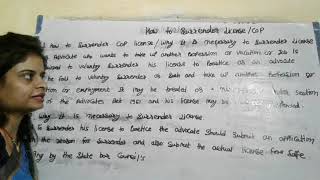 How to Surrender License/COP
How to Surrender COP license/why it is necessary to Surrender License
Advocate who wants to take up another profession or vacation or Job is
to Surrender his license to Practice as an advocate
fail to voluntary Surrender as Such and take up another profession or
or employment it may be treated as a
of the Advocates Act 1961 and his license may be
why it is necessary to surrender license
To Surrender his license to Practice the advocate Should Submit an application
for Surrender and also Submit the actual license for Safe
by the State Bar Council's